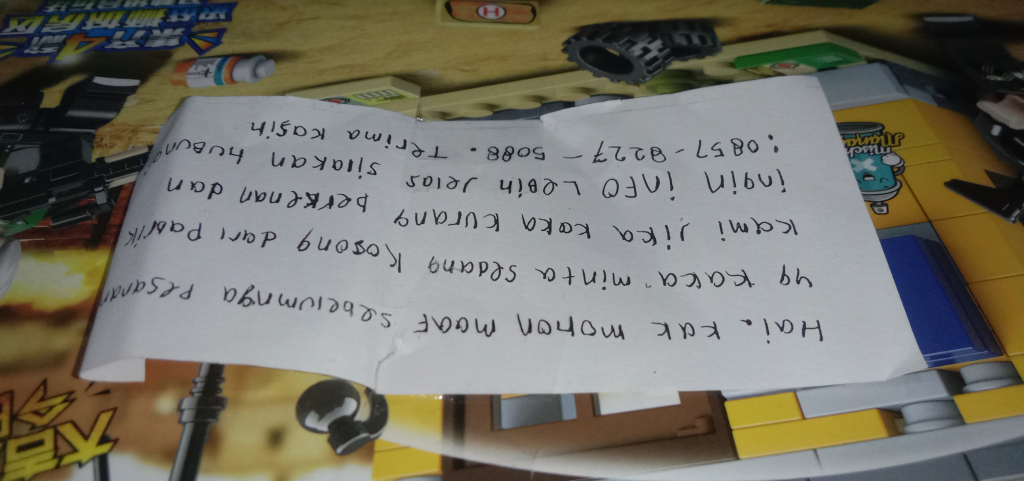 Hai. kak mohon maaf sebelumnya Pesanan
yg kaka minta sedang kosong dari Pabrik
kami jika kaka kurang berkenan dan
ingin iNFO Lebih Jelas silakan hubungi
: 0857-8227-5088. Terima kasih